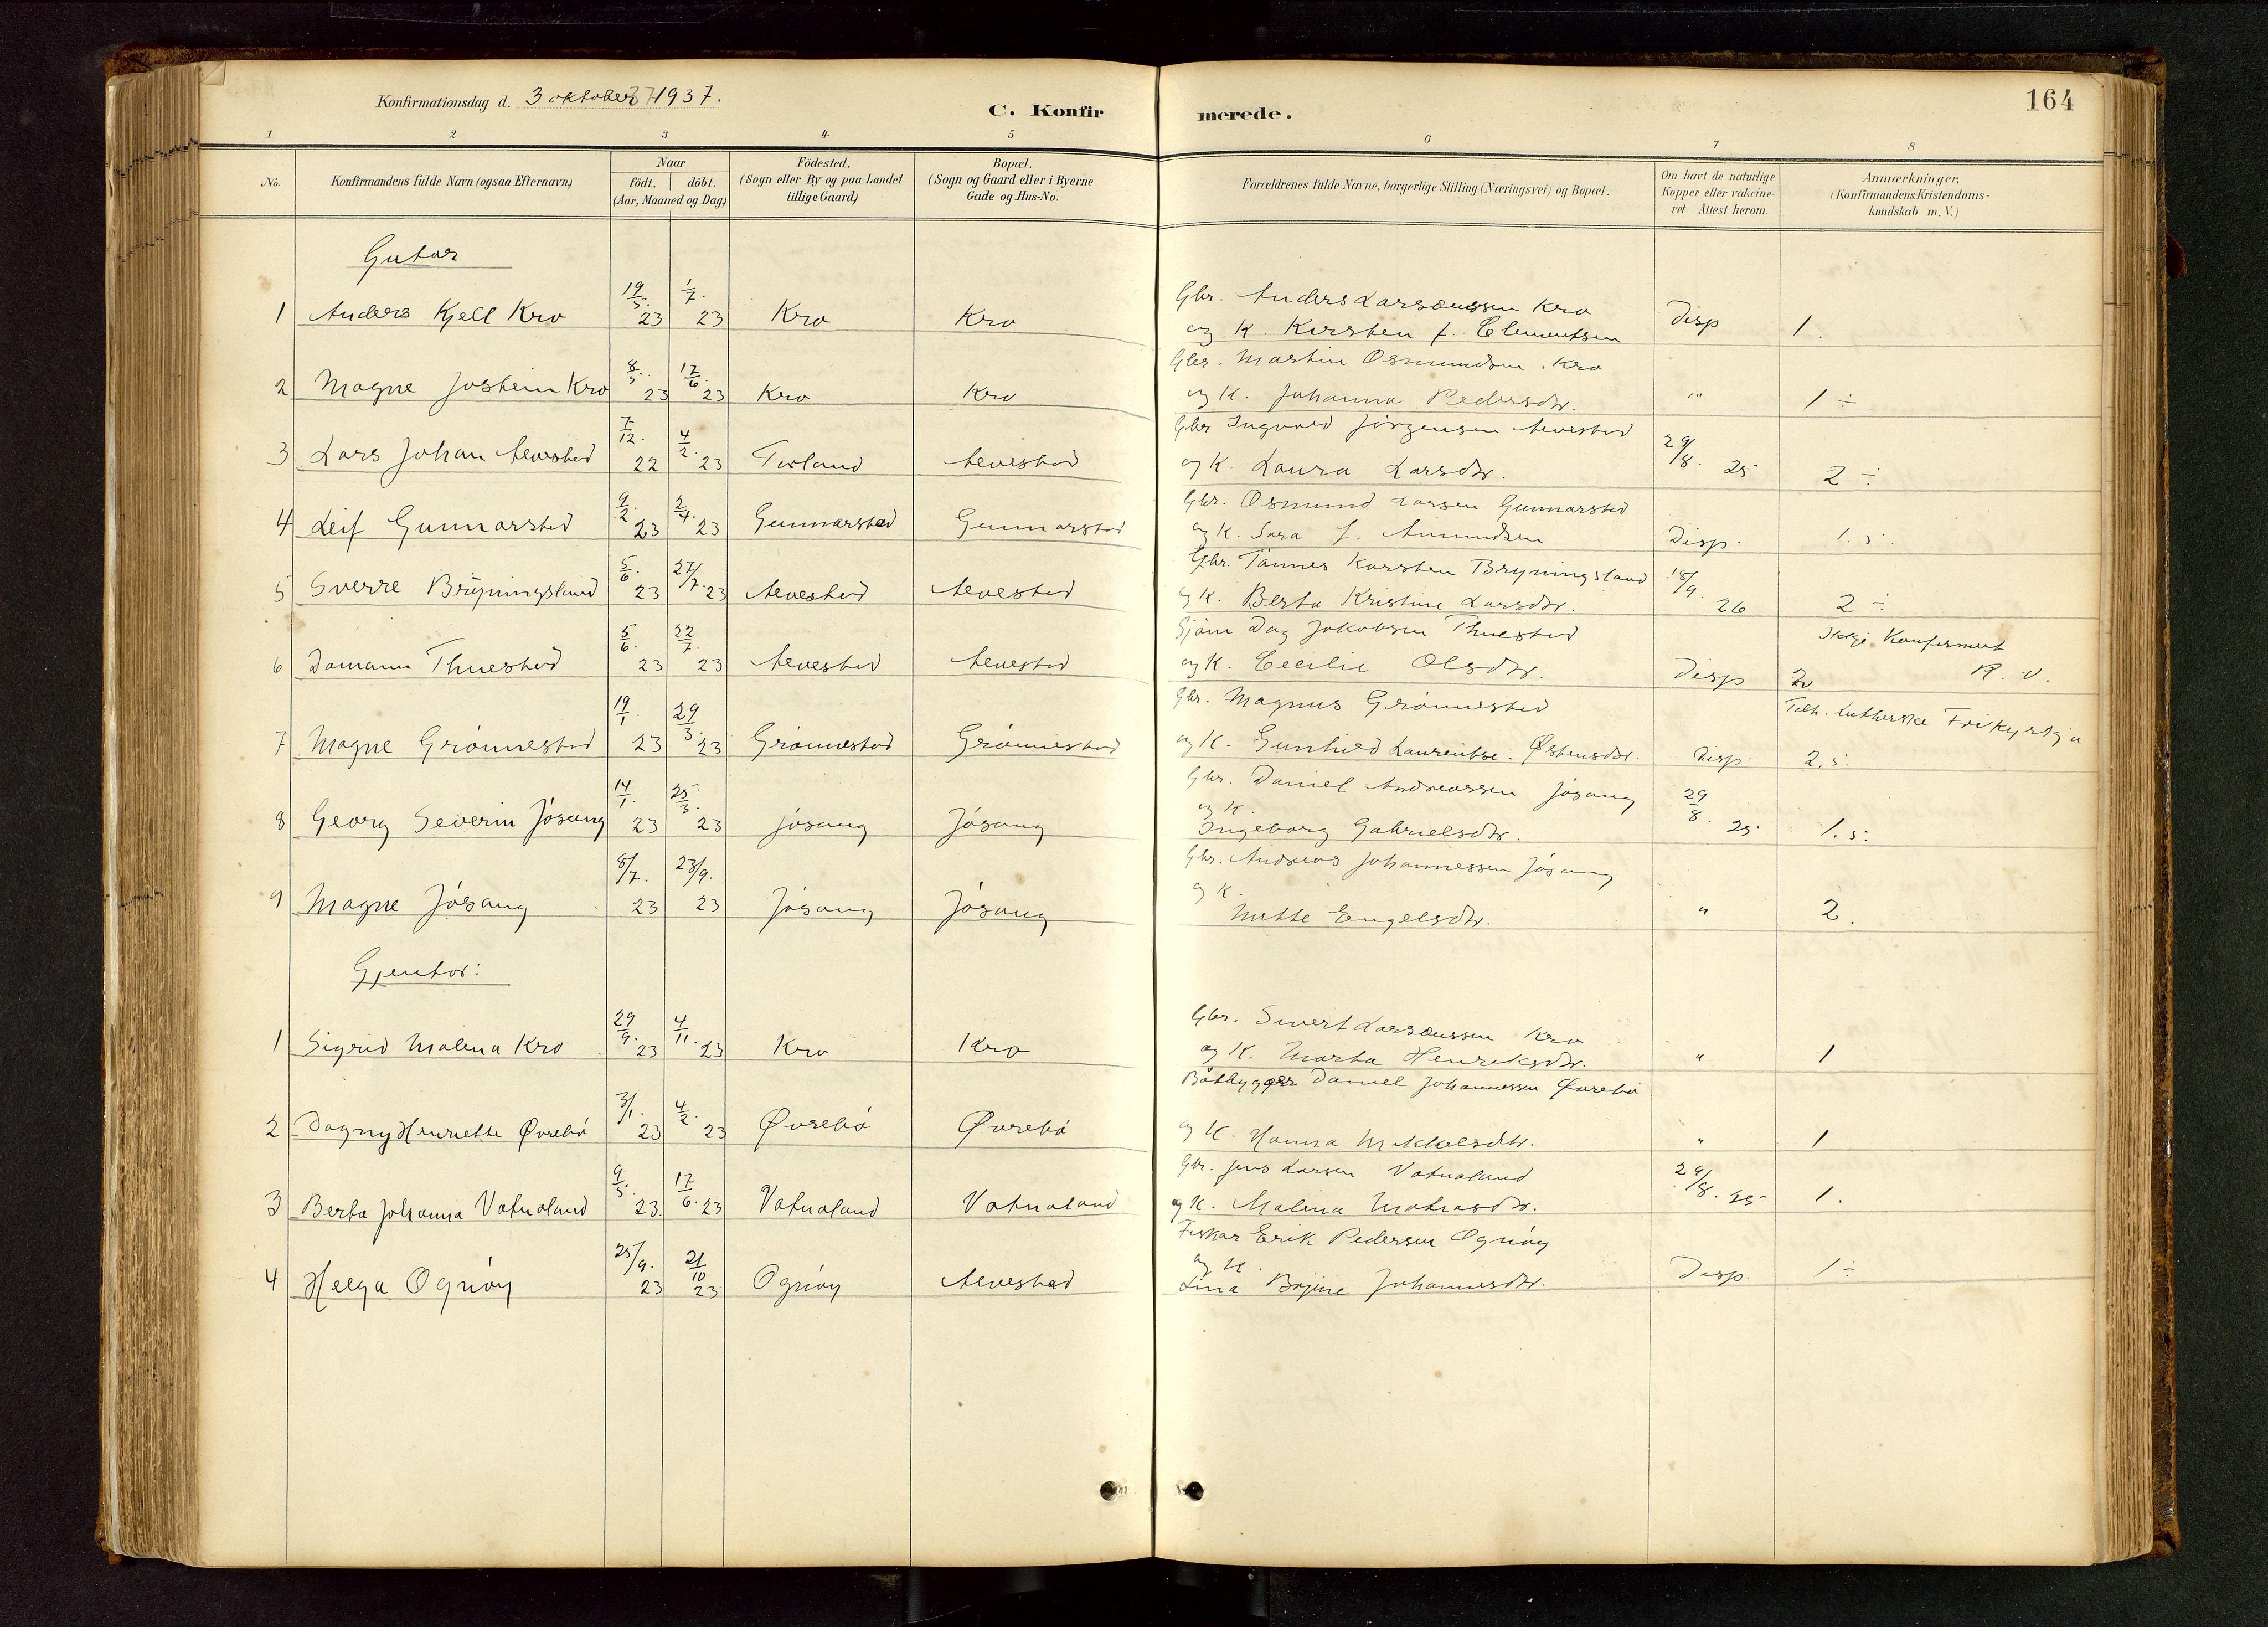 164
Konfirmationsdag d. 3 oktober 1937.
C. Konfirmerede.
1 2 3 4 5 6 7 8
No.
Konfirmandens fulde Navn (ogsaa Efternavn)
Naar
födt. döbt.
(Aar, Maaned og Dag)
Födested.
(Sogn eller By og paa Landet
tillige Gaard)
Bopæl.
(Sogn og Gaard eller i Byerne
Gade og Hus-No.
Forældrenes fulde Navne, borgerlige Stilling (Næringsvei) og Bopæl.
Om havt de naturlige
Kopper eller vakcine-
ret. Attest herom.
Anmærkninger.
(Konfirmandens Kristendoms-
kundskab m. V.)
Gutar
1 Anders Kjell Kro 19/5. 23 1/7. 23 Kro Kro
Gbr. Anders Larsænssen Kro
og K. Kirsten f. Clementsen Disp 1.
2 Magne Jostein Kro 8/5. 23 17/6. 23 Kro Kro
Gbr. Martin Osmundsen. Kro
og K. Johanna Pedersdtr. " 1 ÷
3 Lars Johan Alvestad 7/12. 22 4/2. 23 Torland Alvestad
Gbr Ingvald Jörgensen Alvestad
og K. Laura Larsdtr. 29/8. 25 2 ÷
4 Leif Gunnarstad 9/2. 23 2/4. 23 Gunnarstad Gunnarstad
Gbr. Osmund Larsen Gunnarstad
og K. Sara f. Amundsen Disp. 1.5.
5 Sverre Bryningsland 5/6. 23 27/7. 23 Alvestad Alvestad
Gbr. Tönnes Karsten Bryningsland
og K. Berta Kristine Larsdtr. 18/9. 26 2 ÷
6 Damann Thuestad 5/6. 23 22/7. 23 Alvestad Alvestad
Sjöm Dag Jakobsen Thuestad
og K. Cecilie Olsdtr. Disp 2
Ikkje Konfirmert
R. V.
7 Magne Grönnestad 19/1. 23 29/3. 23 Grönnestad Grönnestad
Gbr. Magnus Grönnestad
og K. Gunhild Laurentse. Østensdtr. Disp. 2.5.
Tilh. Lutherske Frikyrkja
8 Georg Severin Jösang 14/1. 23 25/3. 23 Jösang Jösang
Gbr. Daniel Andreassen Jösang
og K.
Ingeborg Gabrielsdtr. 29/8. 25 1.5.
9 Magne Jösang 8/7. 23 23/9. 23 Jösang Jösang
Gbr. Andreas Johannessen Jösang
og K.
Mette Engelsdtr. " 2.
Gjentor:
1 Sigrid Malena Kro 29/9. 23 4/11. 23 Kro Kro
Gbr. Sivert Larsænssen Kro
og K. Marta Henriksdtr. " 1
2 Dagny Henriette Øvrebö 3/1. 23 4/2. 23 Øvrebö Øvrebö
Båtbyggar Daniel Johannessen Øvrebö
og K. Hanna Mikkelsdtr. " 1
3 Berta Johanna Vatnaland 9/5. 23. 17/6. 23 Vatnaland Vatnaland
Gbr. Jens Larsen Vatnaland
og K. Malena Matiasdtr. 29/8. 25 1.
4 Helga Ognöy 25/9. 23 21/10 23 Ognöy Alvestad
Fiskar Erik Pedersen Ognöy
og K.
Lina Bojine Johannesdtr. Disp. 1 ÷